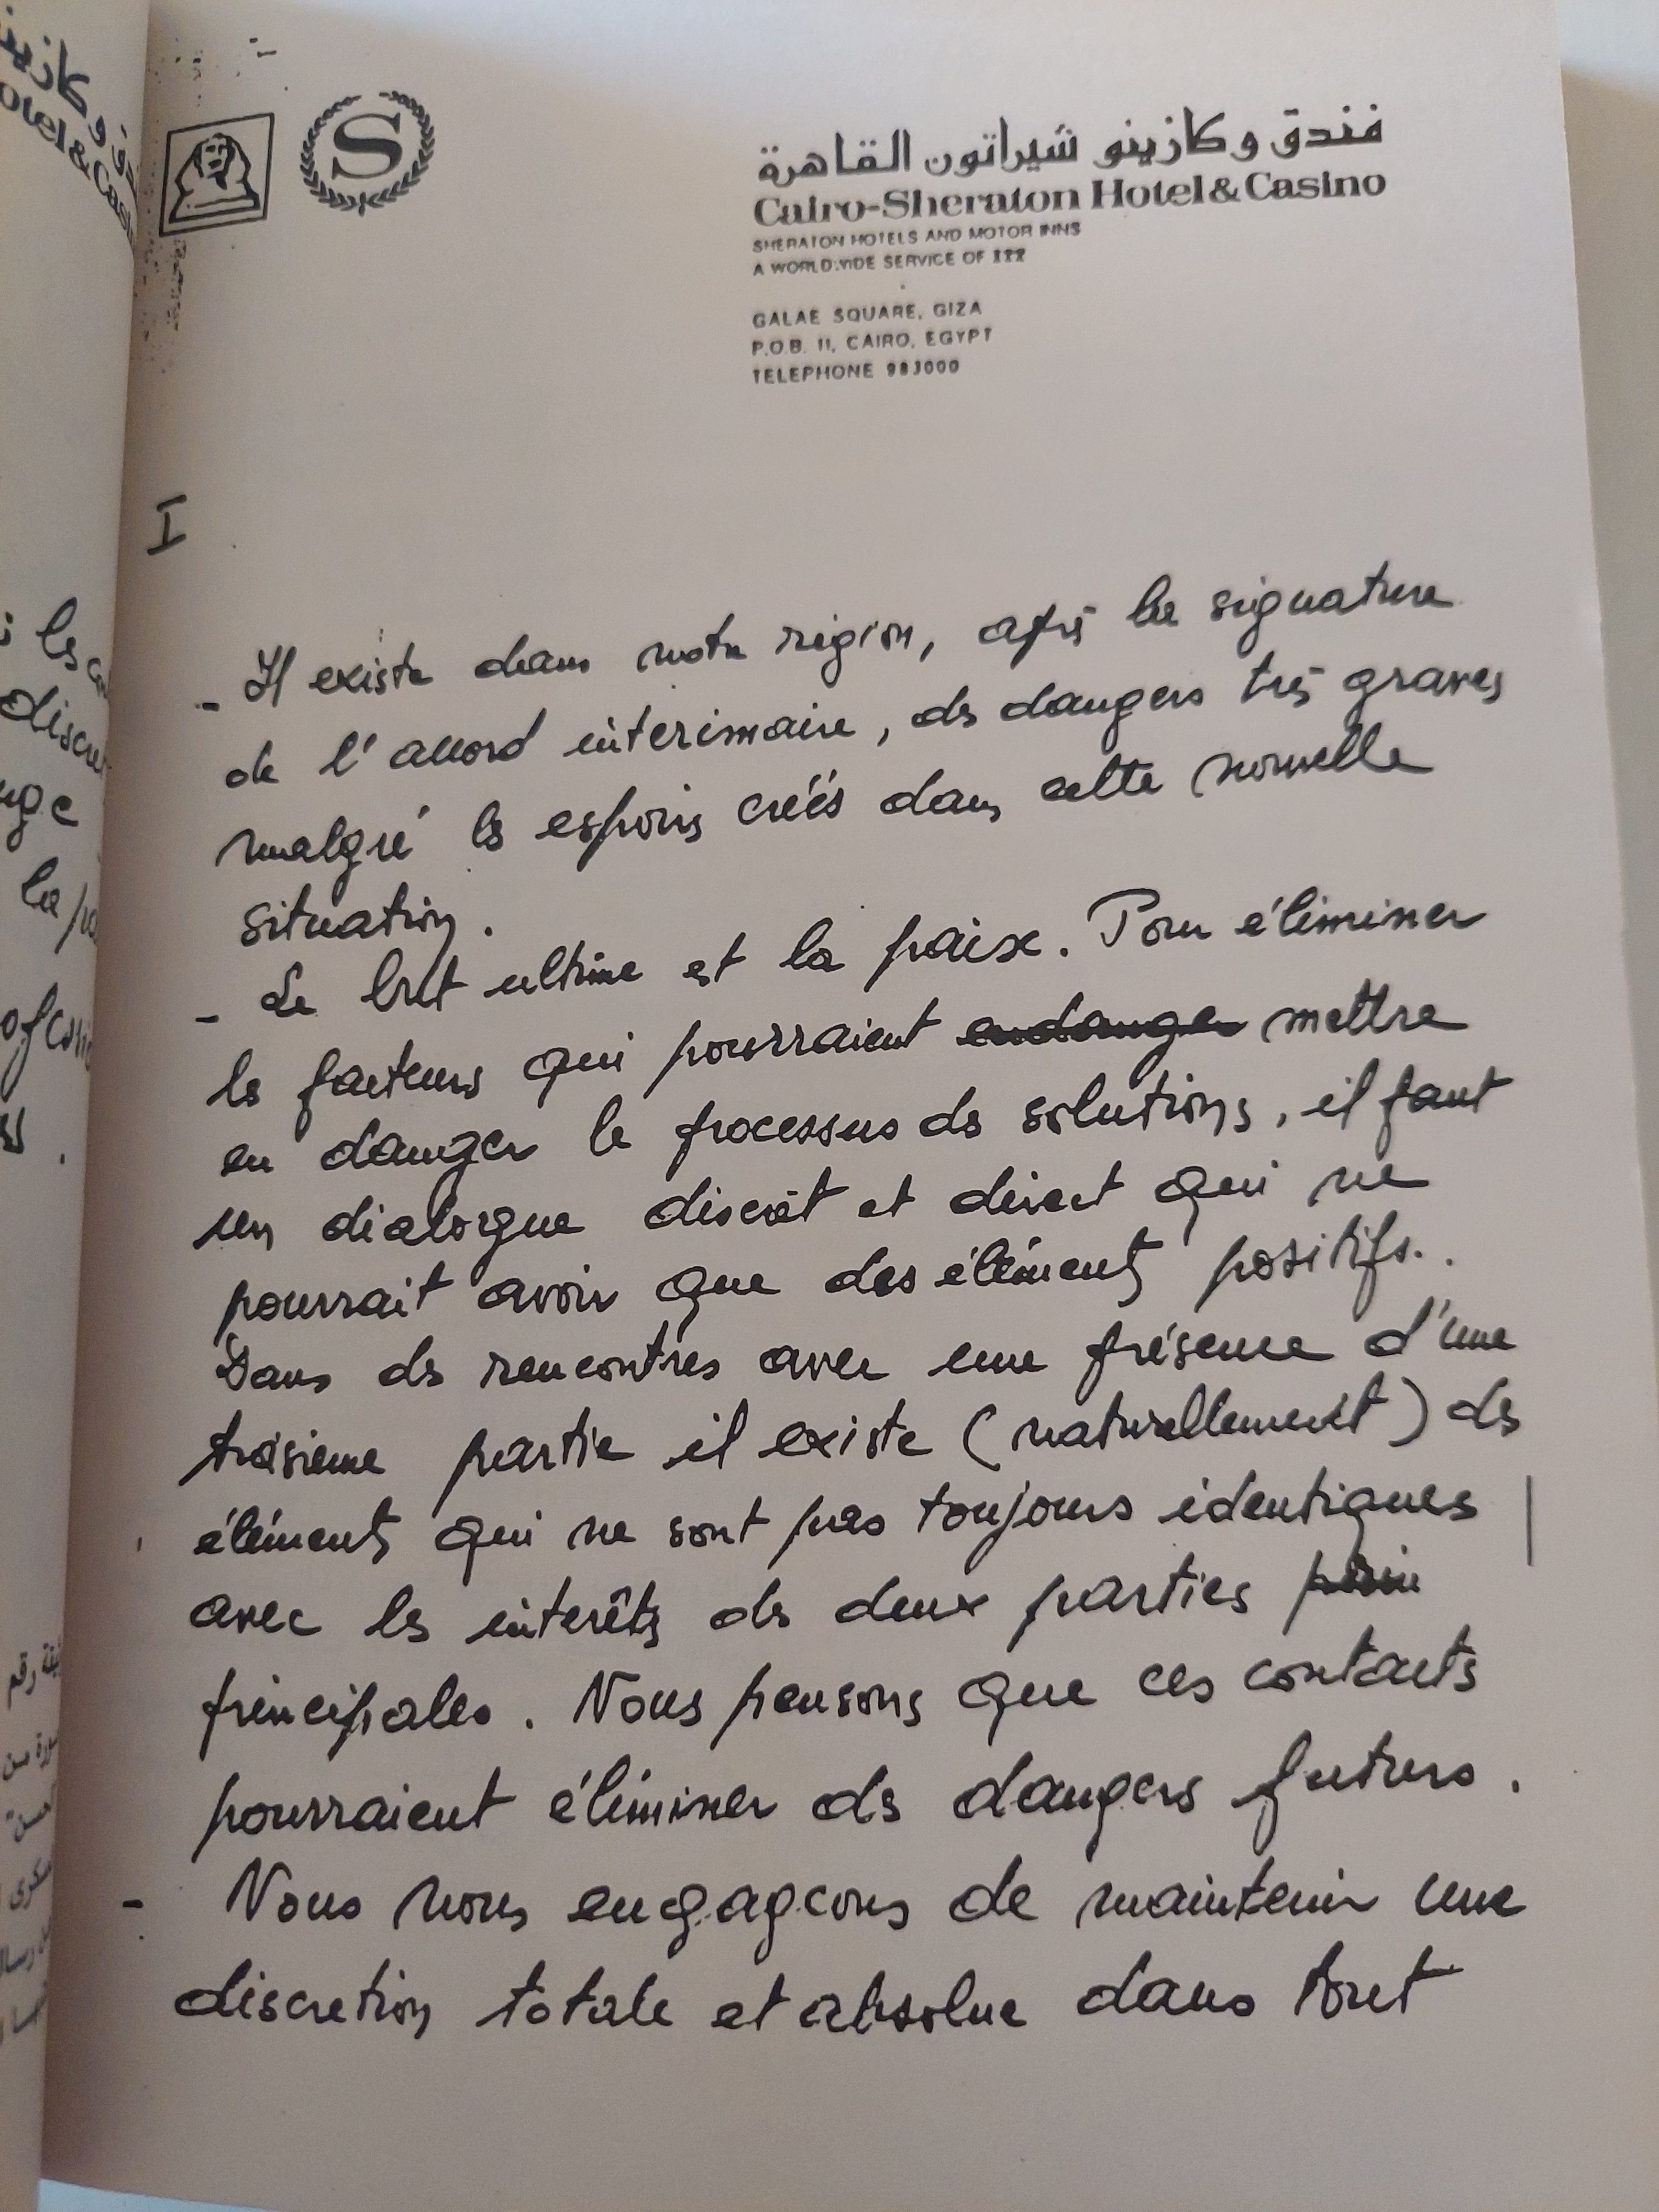 S
فندق وكازينو شيراتون القاهرة
Cairo-Sheraton Hotel & Casino
SHERATON HOTELS AND MOTOR INNS
A WORLDWIDE SERVICE OF ITT
GALAE SQUARE, GIZA
P.O.B. 11, CAIRO, EGYPT
TELEPHONE 983000
I
- Il existe dans notre région, après la signature
de l'accord intérimaire, des dangers très graves
malgré les espoirs créés dans cette nouvelle
situation.
- Le but ultime est la paix. Pour éliminer
les facteurs qui pourraient endanger mettre
en danger le processus de solutions, il faut
un dialogue discrèt et direct qui ne
pourrait avoir que des éléments positifs.
Dans des rencontres avec une présence d'une
troisieme partie il existe (naturellement) des
éléments qui ne sont pas toujours identiques
avec les interêts des deux parties
principales. Nous pensons que ces contacts
pourraient éliminer des dangers futurs.
- Nous nous engageons de maintenir une
discretion totale et absolue dans tout